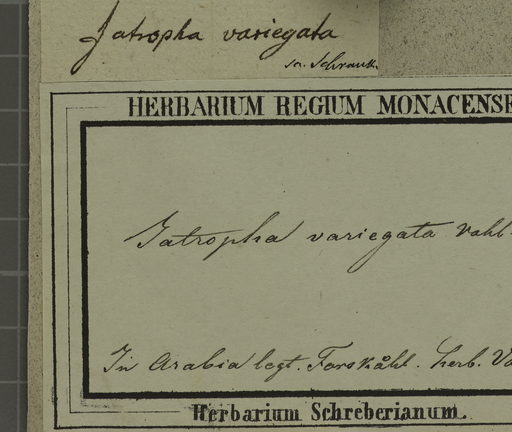 Jatropha variegata
sc. Schrank.
HERBARIUM REGIUM MONACENSE
Jatropha variegata Vahl.
In Arabia legt. Forskåhl. herb. Va
Herbarium Schreberianum.